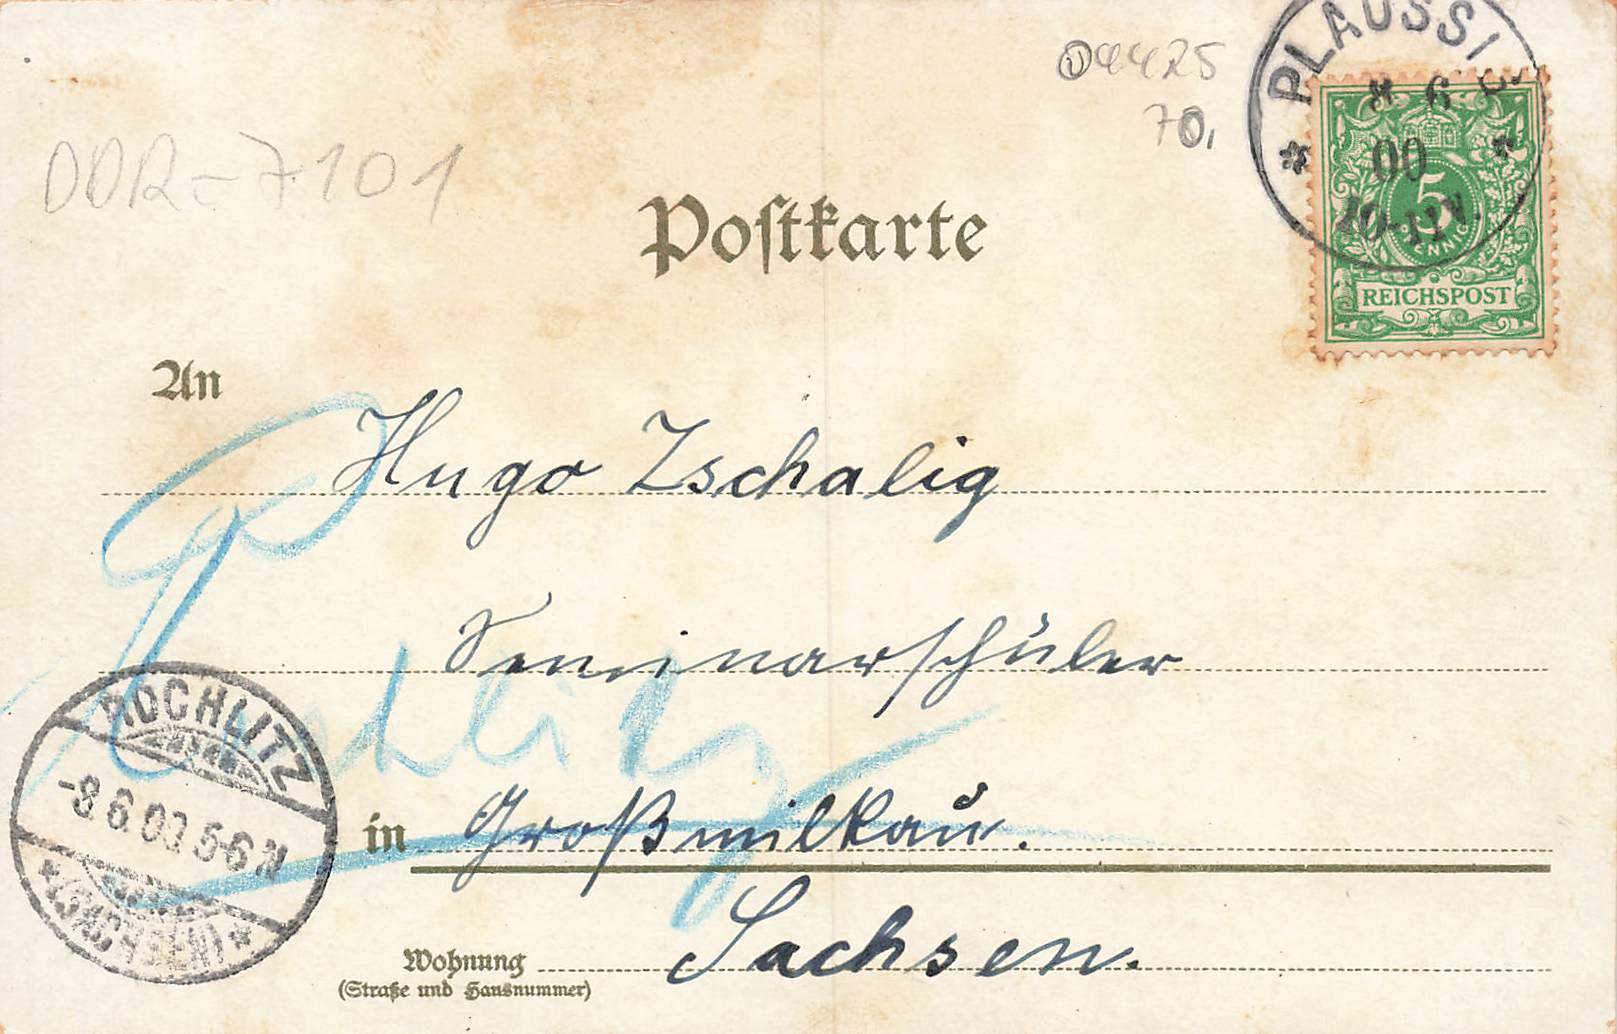 04425
70,
PLAUSSIG
8 6
00
10-11V.
5
PFENNIG
REICHSPOST
DDR-7101
Postkarte
An
Hugo Zschalig
Seminarschüler
Rochlitz
in Großmilkau.
Sachsen.
Wohnung
(Straße und Hausnummer)
ROCHLITZ
-8.6.00.5-6N
*(SACHSEN)*